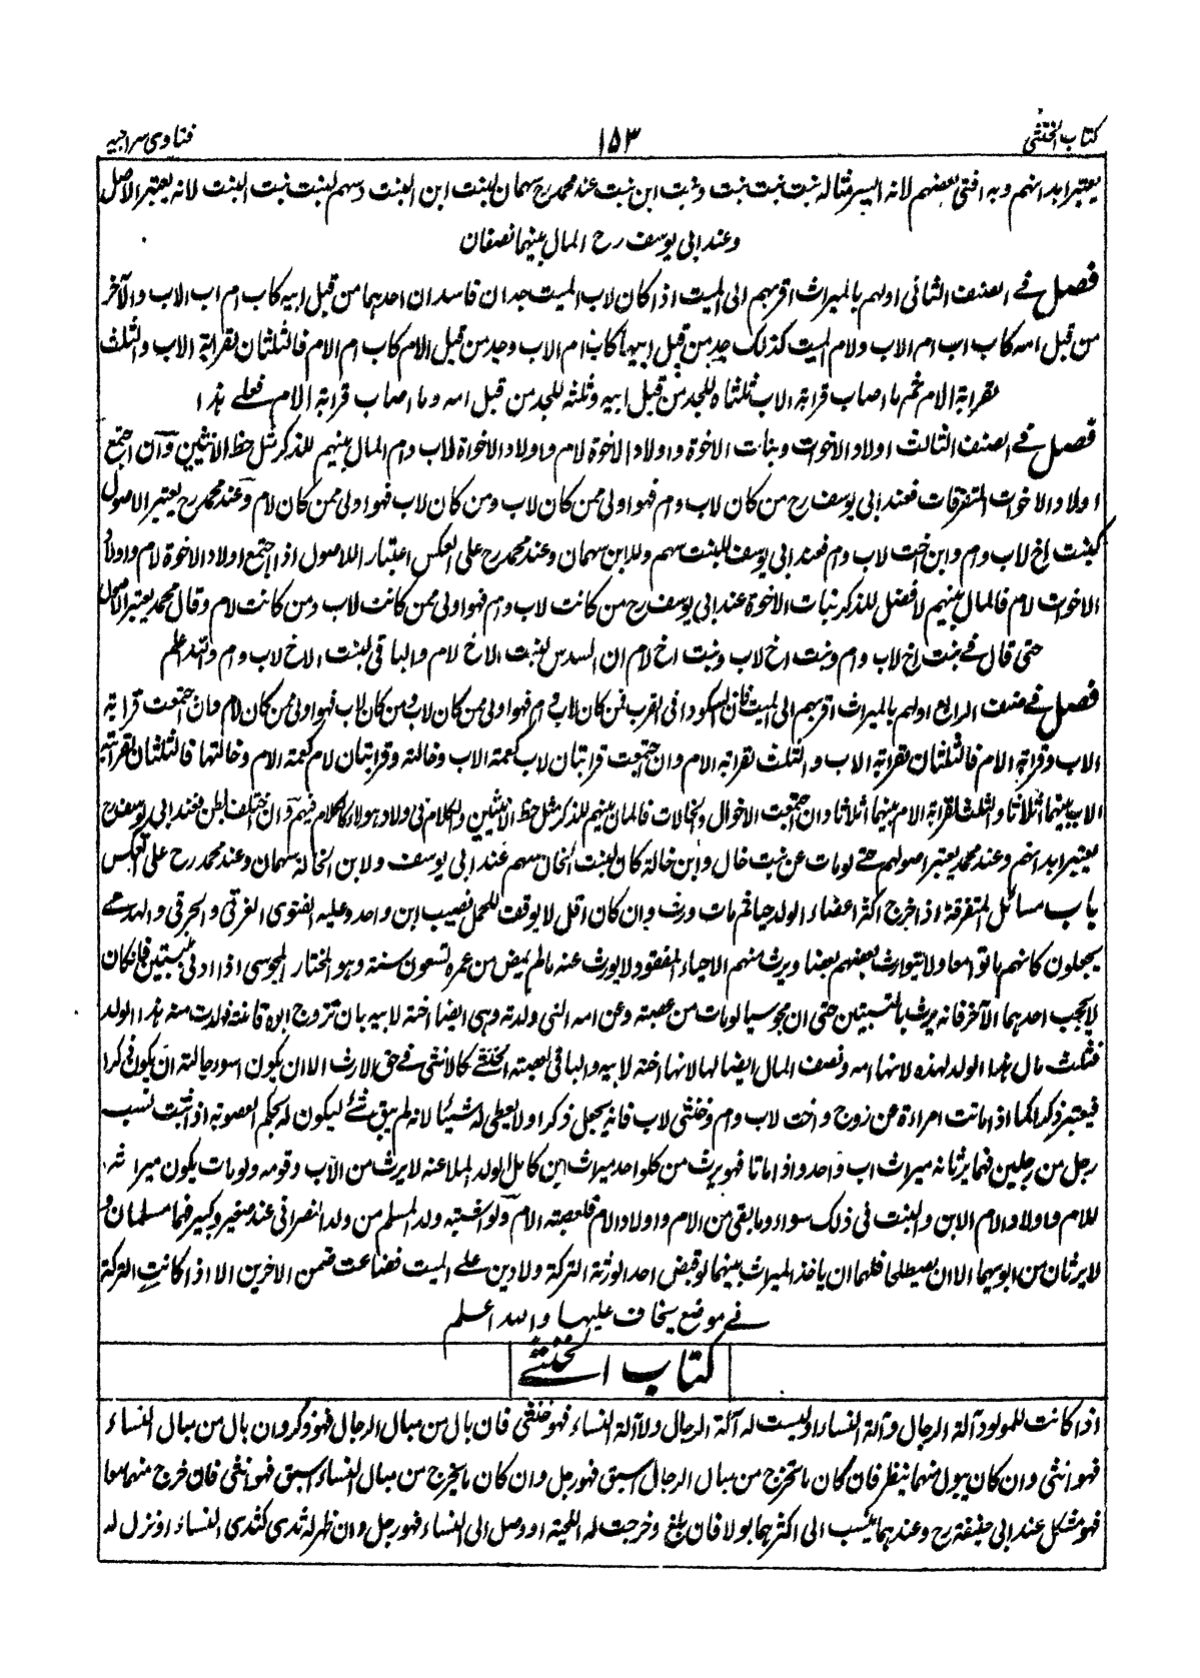 كتاب الخنثى
١٥٣
فتاوى سراجيه
يعتبر ابدانهم وبه افتى بعضهم لانه ايسر مثاله بنت بنت بنت وبنت ابن بنت عند محمد رح سهمان لبنت ابن البنت وسهم لبنت بنت البنت لانه يعتبر الاصل
وعند ابى يوسف رح المال بينهما نصفان
فصل فى الصنف الثانى اولهم بالميراث اقربهم الى الميت اذا كان لاب الميت جدان فاسدان احدهما من قبل ابيه كاب ام اب الاب والآخر
من قبل امه كاب اب ام الاب ولام الميت كذلك جد من قبل ابيها كاب ام الاب وجد من قبل الام كاب ام الام فالثلثان لقرابة الاب والثلث
لقرابة الام ثم ما اصاب قرابة الاب ثلثاه للجد من قبل ابيه وثلثه للجد من قبل امه وما اصاب قرابة الام فعلى هذا
فصل فى الصنف الثالث اولاد الاخوات وبنات الاخوة واولاد الاخوة لام واولاد الاخواة لاب وام المال بينهم للذكر مثل حظ الانثيين وان اجتمع
اولاد الاخوات المتفرقات فعند ابى يوسف رح من كان لاب وام فهو اولى ممن كان لاب ومن كان لاب فهو اولى ممن كان لام وعند محمد رح يعتبر الاصول
كبنت اخ لاب وام وابن اخت لاب وام فعند ابى يوسف للبنت سهم وللابن سهمان وعند محمد رح على العكس اعتبار اللاصول اذا اجتمع اولاد الاخوة لام واولاد
الاخوات لام فالمال بينهم لا فضل للذكر بنات الاخوة عند ابى يوسف رح من كانت لاب وام فهو اولى ممن كانت لاب ومن كانت لام وقال محمد يعتبر الاصول
حتى قال فى بنت اخ لاب وام وبنت اخ لاب وبنت اخ لام ان السدس لبنت الاخ لام والباقى لبنت الاخ لاب وام والله اعلم
فصل فى صنف الرابع اولهم بالميراث اقربهم الى الميت فان استووا فى القرب فمن كان لاب وام فهو اولى ممن كان لاب ومن كان لاب فهو اولى ممن كان لام وان اجتمعت قرابة
الاب وقرابة الام فالثلثان لقرابة الاب والثلث لقرابة الام وان اجتمعت قرابتان لاب كعمة الاب وخالته وقرابتان لام كعمة الام وخالتها فالثلثان لقرابة
الاب بينهما اثلاثا والثلث لقرابة الام بينهما اثلاثا وان اجتمعت الاخوال والخالات فالمال بينهم للذكر مثل حظ الانثيين والكلام فى ولاد هولاء كالكلام فيهم وان اختلف بطن فعند ابى يوسف رح
يعتبر ابدانهم وعند محمد يعتبر اصولهم حتى لومات عن بنت خال وابن خالة كان لبنت الخال سهم عند ابى يوسف ولابن الخالة سهمان وعند محمد رح على العكس
باب مسائل المتفرقة اذا خرج اكثر اعضاء الولد حيا ثم مات ورث وان كان اقل لا يوقف للحمل نصيب ابن واحد وعليه الفتوى الغرقى والحرقى والهدمى
يجعلون كانهم ماتوا معا ولا يتوارث بعضهم بعضا ويرث منهم الاحياء المفقود لا يورث عنه مالم يمض من عمره تسعون سنة وهو المختار المجوسى اذا ادلى بنسبتين فان كان
لا يحجب احدهما الآخر فانه يرث بالنسبتين حتى ان مجوسيا لومات من عصبته وعن امه التى ولدته وهى ايضا اخته لابيه بان تزوج ابوه فولدت منه هذا الولد
فثلث مال هذا الولد لهذه لانها امه ونصف المال ايضا لها لانها اخته لابيه والباقى لعصبته الخنثى كالانثى فى حق الارث الا ان يكون اسوء حالته ان يكون ذكرا
فيعتبر ذكرا كما اذا ماتت امراءة عن زوج واخت لاب وام وخنثى لاب فانه يجعل ذكرا ولا يعطى له شيئا لانه لم يبق شئ ليكون له بحكم العصوبة اذا ثبت نسب
رجل من رجلين فهما يرثانه ميراث اب واحد واذا ماتا فهو يرث من كلواحد ميراث ابن كامل الولد الملاعنه لا يرث من الآب وقومه ولومات يكون ميراثه
للام واولاد الام الابن والبنت فى ذلك سواء وما بقى من الام واولاد الام فلعصبته الام ولو اشتبه ولد المسلم من ولد النصرانى عند صغير وكبير فهما مسلمان و
لا يرثان من ابويهما الا ان يصطلحا فلهما ان ياخذ الميراث بينهما لو قبض احد الورثة التركة ولا دين على الميت فضاعت ضمن الآخرين الا اذا كانت التركة
فى موضع يخاف عليها والله اعلم
كتاب الخنثى
اذا كانت للمولود آلة الرجال وآلة النساء او ليست له آلة الرجال ولا آلة النساء فهو خنثى فان بال من مبال الرجال فهو ذكر وان بال من مبال النساء
فهو انثى وان كان يبول منهما ينظر فان كان ما يخرج من مبال الرجال اسبق فهو رجل وان كان ما يخرج من مبال النساء اسبق فهو انثى فان خرج منهما معا
فهو مشكل عند ابى حنيفة رح وعندهما ينسب الى اكثرهما بولا فان بلغ وخرجت له اللحية او وصل الى النساء فهو رجل وان ظهر له ثدى كثدى النساء او نزل له